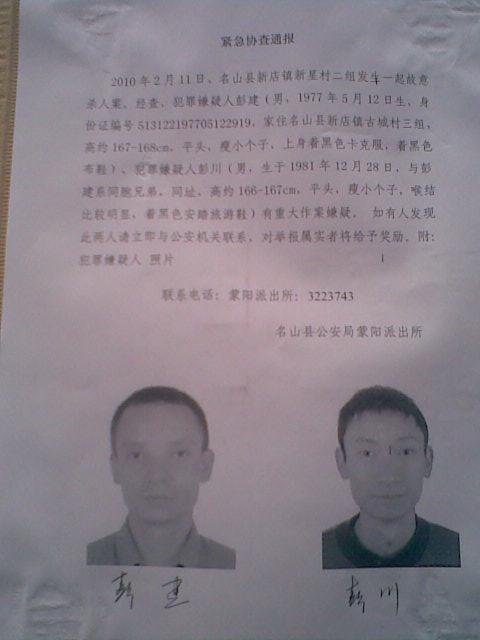 紧急协查通报
2010年2月11日、名山县新店镇新星村二组发生一起故意
杀人案、经查，犯罪嫌疑人彭建（男，1977年5月12日生，身
份证编号513122197705122919，家住名山县新店镇古城村三组，
高约167-168cm，平头，瘦小个子，上身着黑色卡克服，着黑色
布鞋）、犯罪嫌疑人彭川（男，生于1981年12月28日，与彭
建系同胞兄弟，同址，高约166-167cm，平头，瘦小个子，喉结
比较明显，着黑色安踏旅游鞋）有重大作案嫌疑。如有人发现
此两人请立即与公安机关联系，对举报属实者将给予奖励。附：
犯罪嫌疑人 照片
联系电话：蒙阳派出所：3223743
名山县公安局蒙阳派出所
彭建 彭川